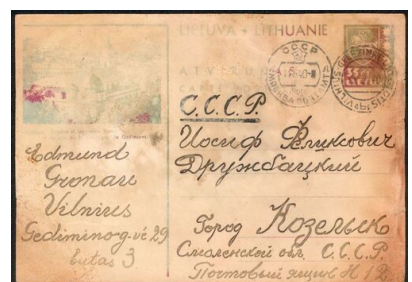 LIETUVA • LITHUANIE
СССР
ATV
С.С.С.Р.
Иосиф Феликсович
Дружбацкий
Город Козельск
Смоленской обл. С.С.С.Р.
Почтовый ящик N 12
Edmund
Gronau
Vilnius
Gedimino g-vė 29
butas 3